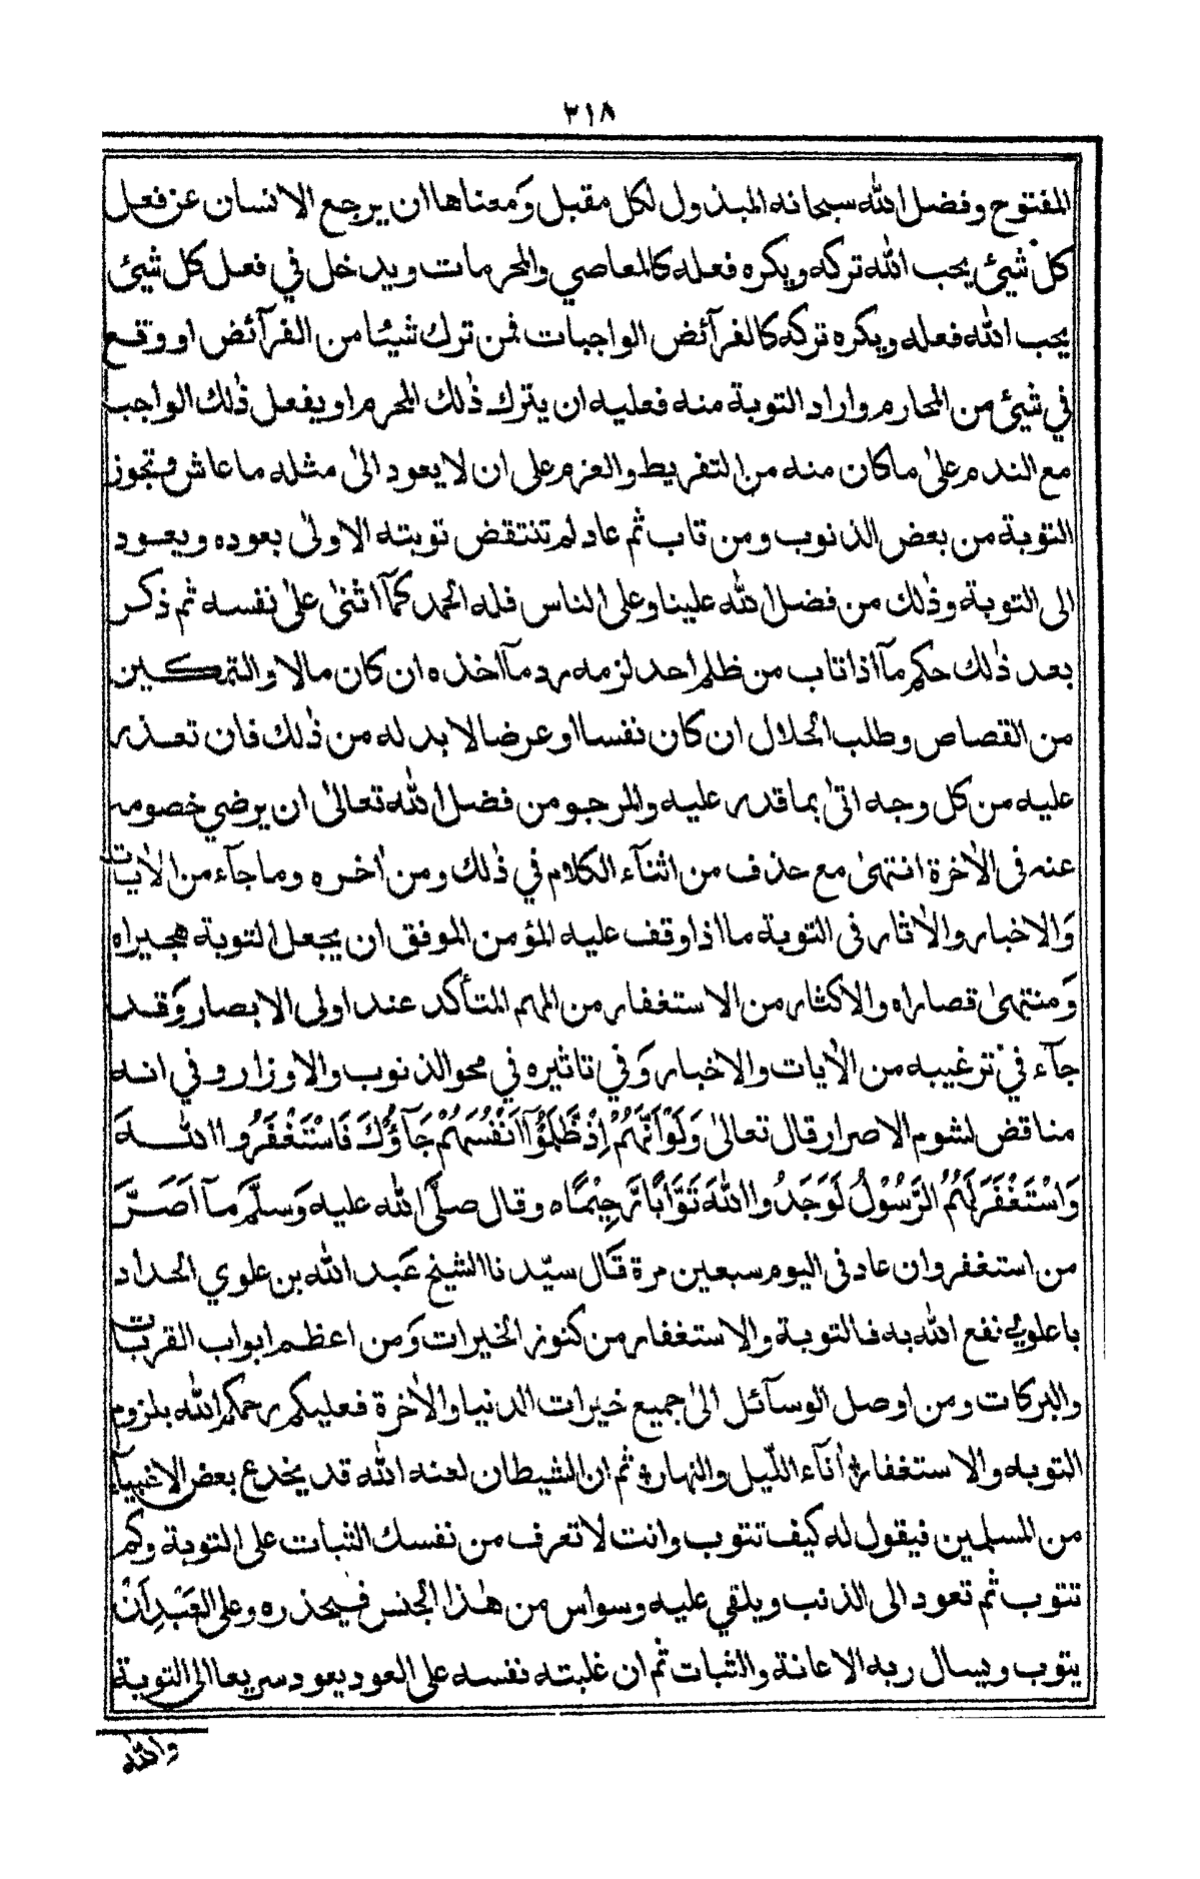 ٣١٨
المفتوح وفضل الله سبحانه المبذول لكل مقبل وَمعناها ان يرجع الانسان عن فعل
كل شيئ يحب الله تركه ويكره فعله كالمعاصي والمحرمات ويدخل في فعل كل شيئ
يحب الله فعله ويكره تركه كالفرآئض الواجبات فمن ترك شيئا من الفرآئض او وقع
في شيئ من المحارم واراد التوبة منه فعليه ان يترك ذٰلك المحرم او يفعل ذٰلك الواجب
مع الندم علىٰ ما كان منه من التفريط والعزم على ان لا يعود الىٰ مثله ما عاش وتجوز
التوبة من بعض الذنوب ومن تاب ثم عاد لم تنتقض توبته الاولىٰ بعوده ويعود
الى التوبة وذٰلك من فضل الله علينا وعلى الناس فله الحمد كمآ اثنىٰ علىٰ نفسه ثم ذكر
بعد ذٰلك حكم مآ اذا تاب من ظلم احد لزمه رد مآ اخذه ان كان مالا والتمكين
من القصاص وطلب الحلال ان كان نفسا او عرضا لا بد له من ذٰلك فان تعذر
عليه من كل وجه اتىٰ بما قدر عليه والمرجو من فضل الله تعالىٰ ان يرضي خصومه
عنه فى الاٰخرة انتهىٰ مع حذف من اثنآء الكلام في ذٰلك ومن اٰخره وما جآء من الاٰيات
وَالاخبار والاٰثار فى التوبة ما اذا وقف عليه المؤمن الموفق ان يجعل التوبة هجيراه
وَمنتهىٰ قصاراه والاكثار من الاستغفار من المهم المتأكد عند اولى الابصار وَقد
جآء في ترغيبه من الاٰيات والاخبار وَفي تاثيره في محو الذنوب والاوزار وفي انه
مناقض لشوم الاصرار قال تعالىٰ وَلَوْ اَنَّهُمْ اِذْ ظَّلَمُوْٓا اَنْفُسَهُمْ جَآؤُكَ فَاسْتَغْفَرُوا اللهَ
وَاسْتَغْفَرَ لَهُمُ الرَّسُوْلُ لَوَجَدُوا اللهَ تَوَّابًا رَّحِيْمًاه وقال صلَّى الله عليه وَسلَّمَ مآ اَصَرَّ
من استغفر وان عاد فى اليوم سبعين مرة قَال سيّدنا الشيخ عَبد الله بن علوي الحداد
باعلوي نفع الله به فالتوبة والاستغفار من كنوز الخيرات وَمن اعظم ابواب القربات
والبركات ومن اوصل الوسآئل الىٰ جميع خيرات الدنيا والاٰخرة فعليكم رحمكم الله بلزوم
التوبه والاستغفار اٰنآء اللّيل والنهار ثم ان الشيطان لعنه الله قد يخدع بعض الاغبيآء
من المسلمين فيقول له كيف تتوب وانت لا تعرف من نفسك الثبات على التوبة وكم
تتوب ثم تعود الى الذنب ويلقي عليه وسواس من هٰذا الجنس فيحذره وعلى العَبْدِ اَنْ
يتوب ويسال ربه الاعانة والثبات ثم ان غلبته نفسه على العود يعود سريعا الى التوبة
والله